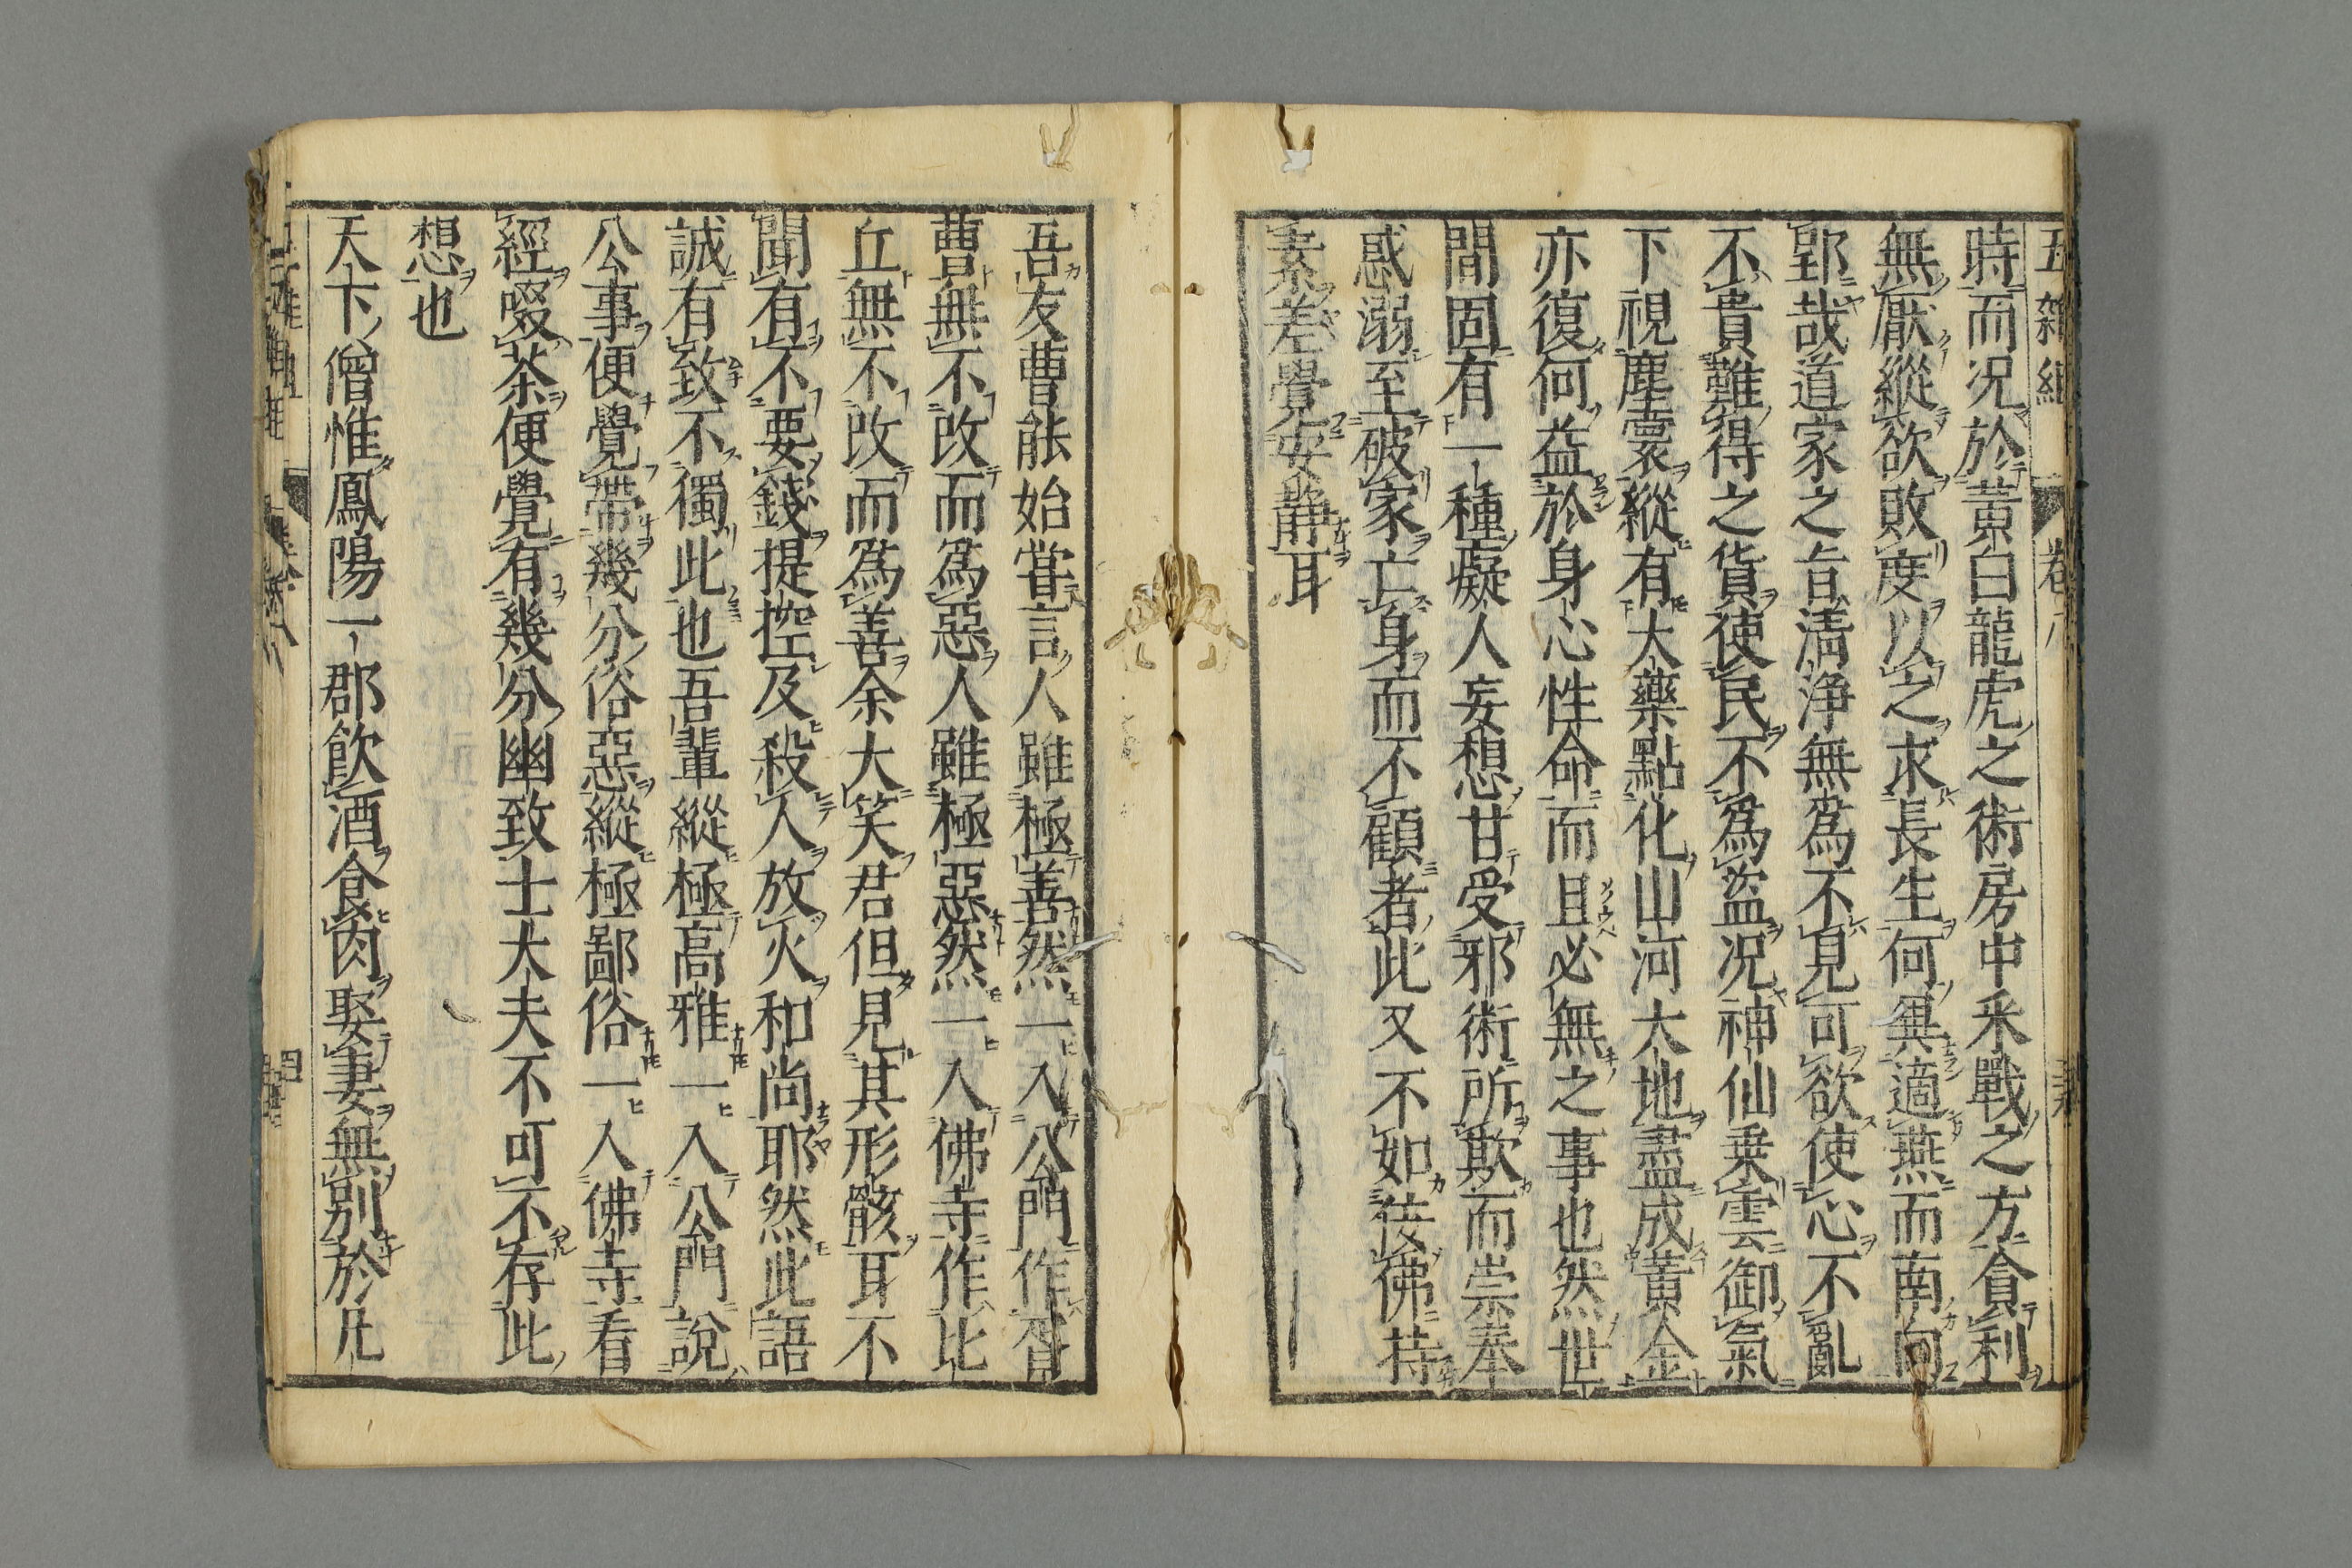 五雜組 卷八
時而況於黃白龍虎之術房中釆戰之方貪利
無厭縱欲敗度以之求長生何異適燕而南向
郢哉道家之旨淸淨無爲不見可欲使心不亂
不貴難得之貨使民不爲盜況神仙乗雲御氣
下視塵寰縱有大藥點化山河大地盡成黃金
亦復何益於身心性命而且必無之事也然世
間固有一種癡人妄想甘受邪術所欺而崇奉
惑溺至破家亡身而不顧者此又不如佞佛持
素差覺安靜耳
吾友曹能始嘗言人雖極善然一入公門作胥
曹無不改而爲惡人雖極惡然一入佛寺作比
丘無不改而爲善余大笑君但見其形骸耳不
聞有不要錢提控及殺人放火和尚耶然此語
誠有致不獨此也吾輩縱極高雅一入公門說
公事便覺帶幾分俗惡縱極鄙俗一入佛寺看
經啜茶便覺有幾分幽致士大夫不可不存此
想也
天下僧惟鳳陽一郡飮酒食肉娶妻無別於凡